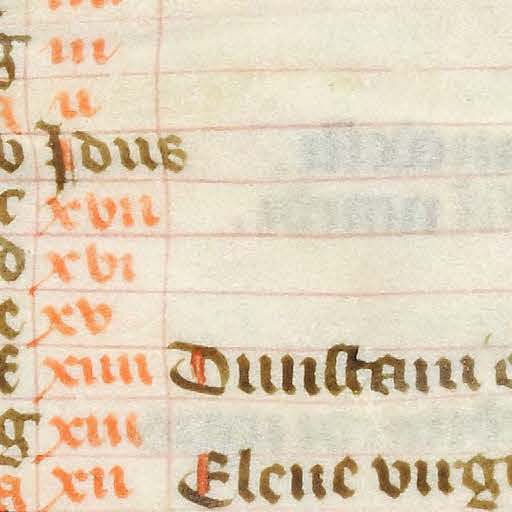 g iii
a ii
b Idus
c xvii
d xvi
e xv
f xiiii Dunstani
g xiii
a xii Elene virg